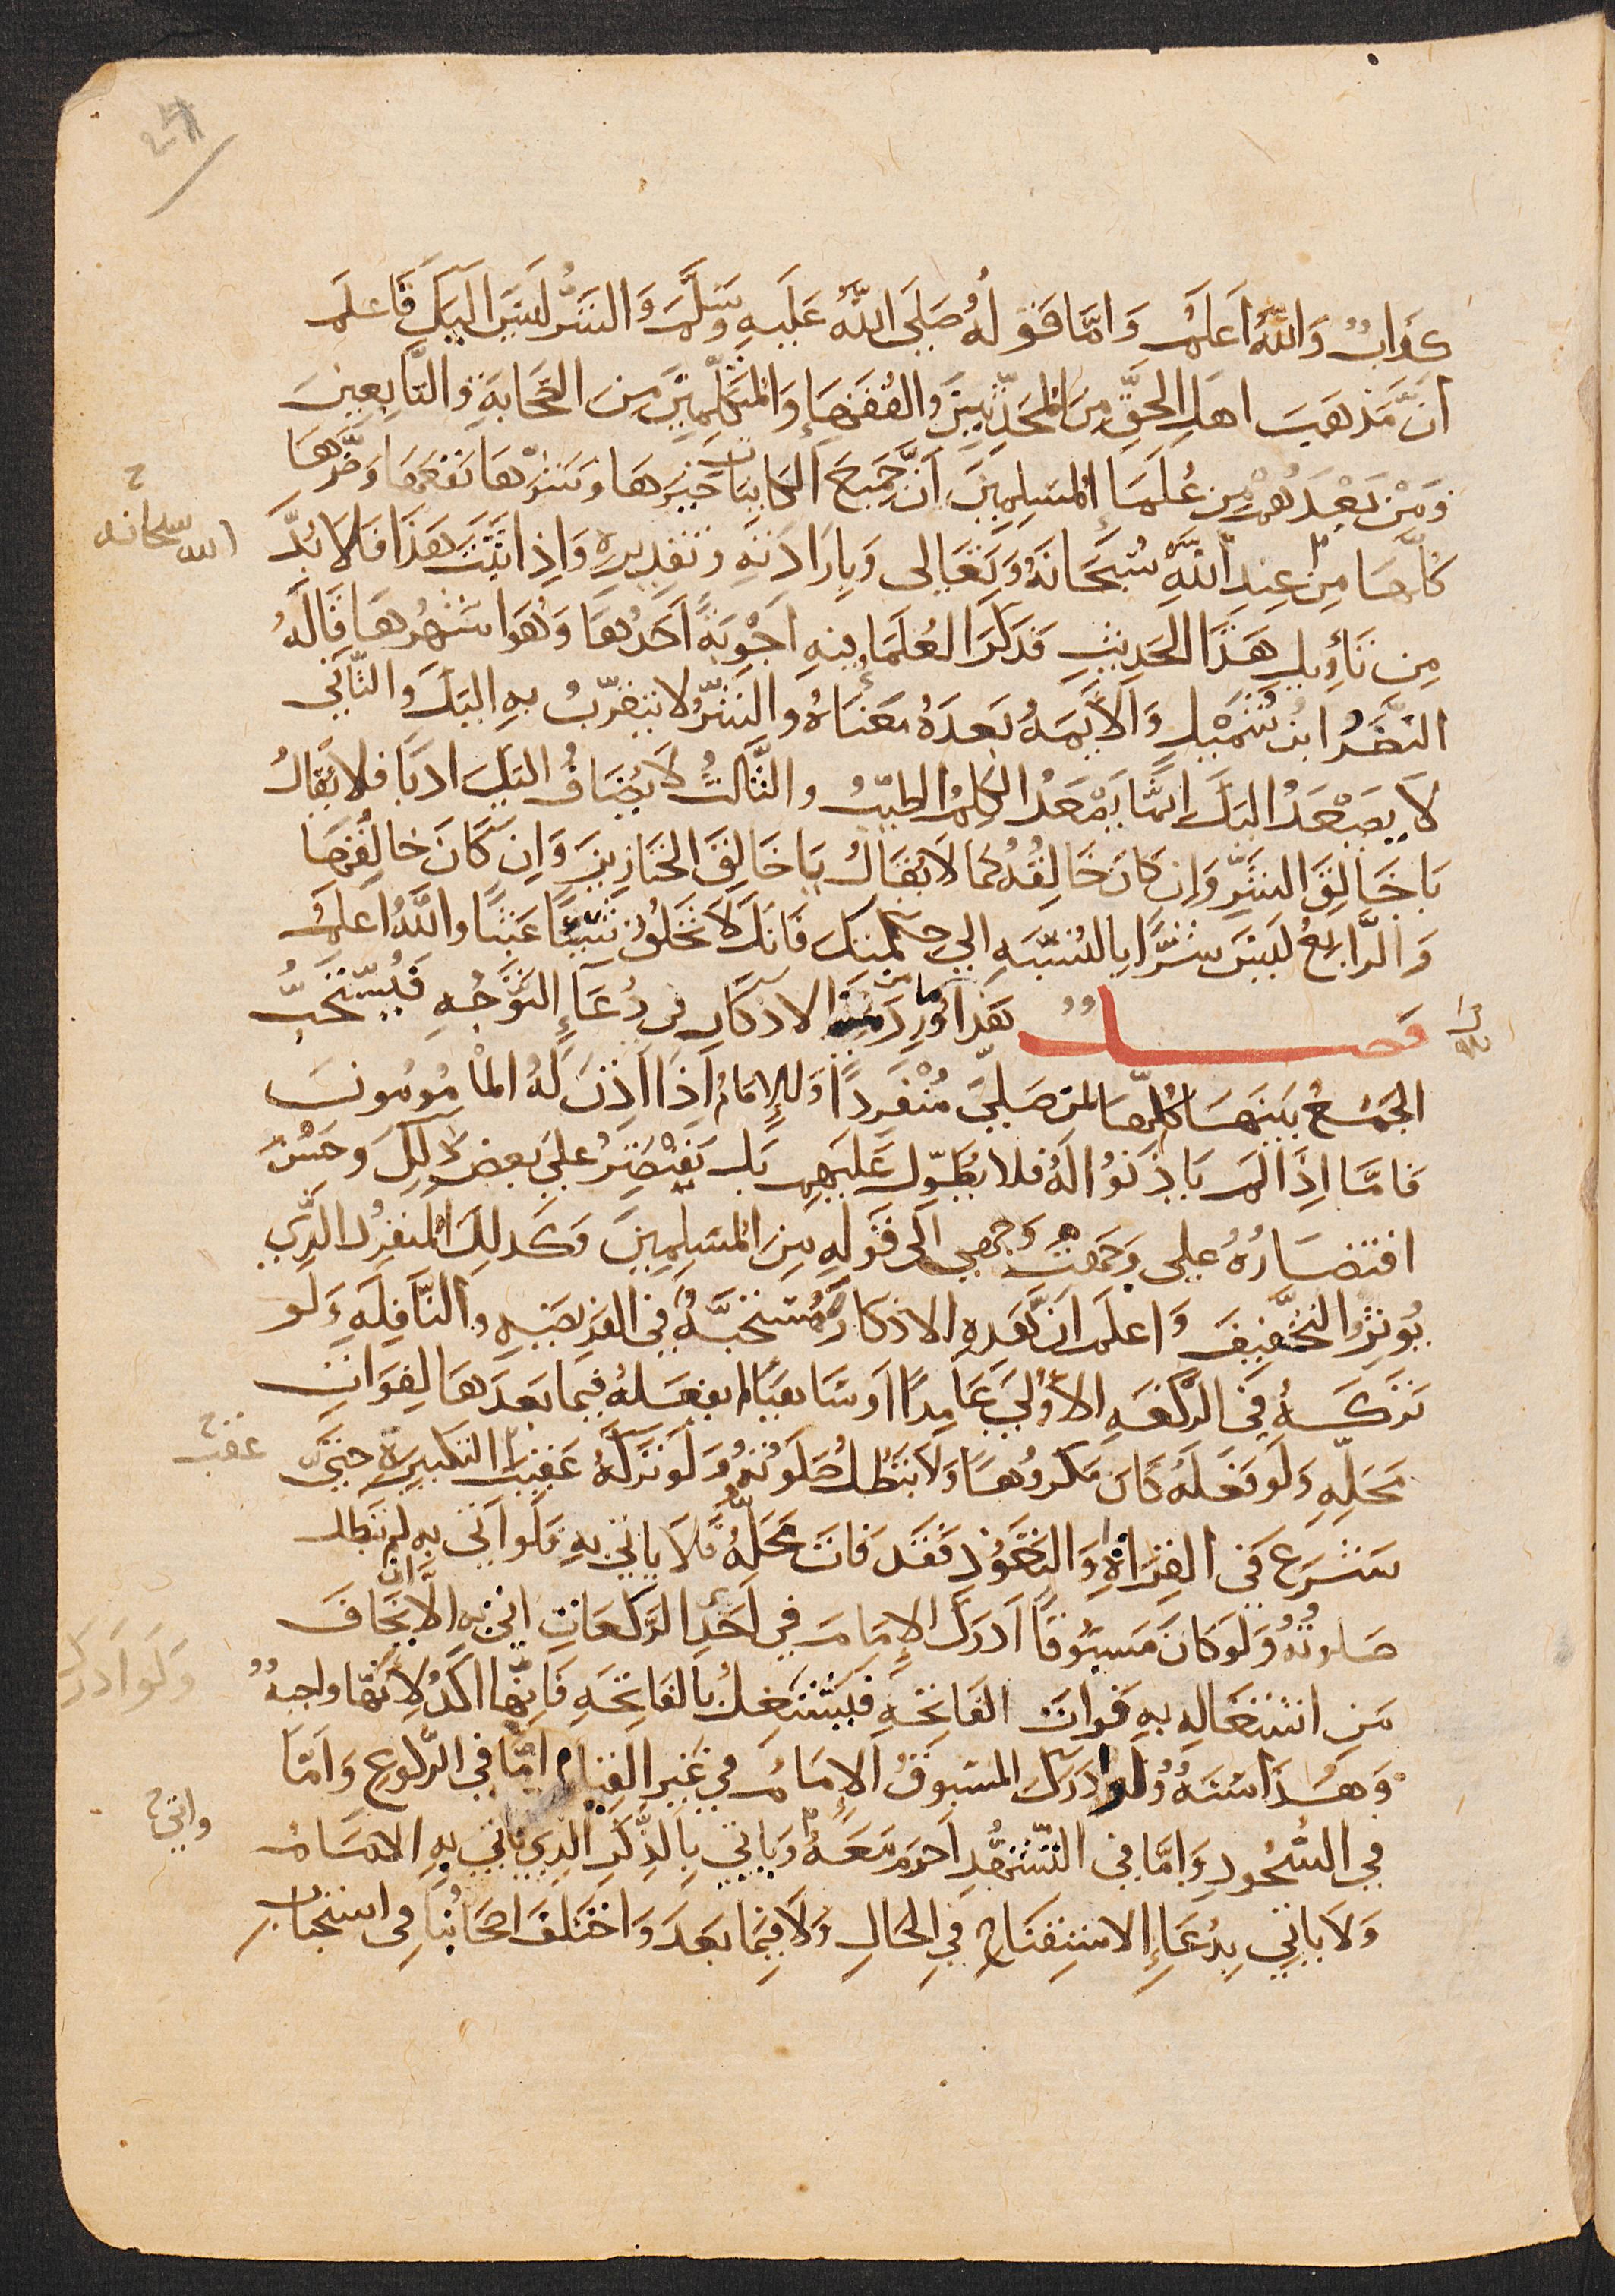 كذاب والله اعلم وَامَّا قَوْلهُ صَلى اللهُ عَلَيهِ وَسَلَّمَ وَالشَر لَيسَ اليَكَ فَاعلَم
انَّ مَذهَبَ اهلِ الحَقِّ مِنَ المُحَدِّثِينَ وَالفُقَهَاءِ وَالمُتَكلِّمِينَ مِنَ الصَّحَابَةِ وَالتَّابِعِينَ
وَمَنْ بَعْدَهُمْ مِن عُلَمَاءِ المُسلِمِينَ اَنَّ جَمِيعَ الكاينَات خَيرَهَا وَشَرّهَا نَفعَهَا وَضَرّهَا
كلّهَا مِن عِندِ اللهِ سُبحَانَهُ وَتَعَالى وَبِارَادَتِهِ وَتَقدِيرِهِ وَاِذا ثَبَتَ هَذَا فَلا بُدَّ
مِن تَأوِيل هَذَا الحَدِيثِ فَذكَرَ العُلمَاء فِيهِ اَجْوِبَةً اَحَدُهَا وَهُوَ اشهَرُهَا قَالَهُ
النَّضرُ ابنُ شُمَيْلِ وَالاَيمَةُ بَعدَهُ مَعنَاهُ وَالشَرُّ لا يتقرّبُ بهِ اليَكَ وَالثَّاني
لاَ يصعَدُ اليَكَ اِنمّا يَصْعَدُ الكلِمُ الطيّبُ وَالثَّالثُ لاَ يُضَافُ اليَكَ ادبًا فلا يُقالُ
يَا خَالِقَ الشَرِّ وَاِن كانَ خَالِقُهُ كمَا لا يُقَالُ يَا خَالِقَ الخَنَازِيرِ وَاِن كَانَ خالِقُهَا
وَالرَّابعُ لَيسَ شرًّا بِالنّسبَةِ الي حِكمتكَ فَانكَ لاَ تَخلُقُ شَيًا عَبَثًا وَاللهُ اَعلَمُ
فَصــــلٌ هَذَا مَا وَرَدَ مِن الاذكَارِ فِي دُعَاءِ التَوَجُّهِ فَيُستَحَبُّ
الجَمْعُ بَينَهَا كلّهَا لمَن صَلىّ مُنفَرِدًا وَللاِمَامِ اِذَا اَذِنَ لهُ المَامُومُونَ
فَامَّا اِذَا لم يَاذَنُوا لَهُ فلا يُطَوِّل عَلَيهِم بَل يَقتَصِرُ عَلى بَعضِ ذَلِكَ وَحَسُنَ
اقتصَارُهُ على وَجَّهتُ وَجهي اَلى قَولِهِ مِنَ المُسلِمِينَ وَكَذلِكَ المُنفرِدُ الذِّي
يُوثِرُ التَّخفِيفَ وَاعلَم انَّ هَذِهِ الاذكَارَ مُستَحَبَّةٌ فِي الفَرِيضَةِ وَالنَّافِلَةِ وَلَو
تَركَـهُ فِي الرَّكعَةِ الاُولي عَامِدًا اَو سَاهِيًا لم يفعَلهُ فِيمَا بَعدَهَا لِفَوَاتِ
مَحلِّهِ وَلَو فَعَلَهُ كَانَ مَكرُوهًا وَلاَ تَبطُلُ صَلَوتُهُ وَلَو تَركَهُ عَقِيبَ التكبِيرَةِ حَتَّى
شَرَعَ فِي القِرَاَةِ وَالتَعَوُّذِ فَقَد فَاتَ مَحَلّهُ فَلاَ يَاتي بهِ فَلَو اَتَى بهِ لم تَبطل
صَلوتُهُ وَلَو كانَ مَسبُوقًا اَدرَكَ الاِمَامَ فِي اَحَدِ الرَّكعَاتِ اتى بهِ الا ان يَخَافَ
مِن اشتغَالِهِ بهِ فَواتَ الفَاتِحَةِ فَيَشتَغِلُ بَالفَاتِحَةِ فَانِّهَا اكَدُ لاَنّهَا واجبَةٌ
وَهَذَا سُنَةٌ وَلَو ادرَكَ المَسبوقُ الاِمَامَ في غَيرِ القِيَام امَّا فِي الرُّكُوعِ وَامّا
في السُّجُودِ وَاِمَّا فِي التّشَهُّدِ احرَمَ مَعَـهُ وَيَاتي بِالذِّكرِ الذِي يَاتي بهِ الاِمَـام
وَلاَ يَاتِي بِدُعَاءِ الاستِفتَاحِ فِي الحَالِ وَلاَ فِيمَا بَعدَ وَاختَلفَ اصحَابُنَا فِي استحبَابِ
الله سبحانه
عقب
وَلَو ادرك
واتى